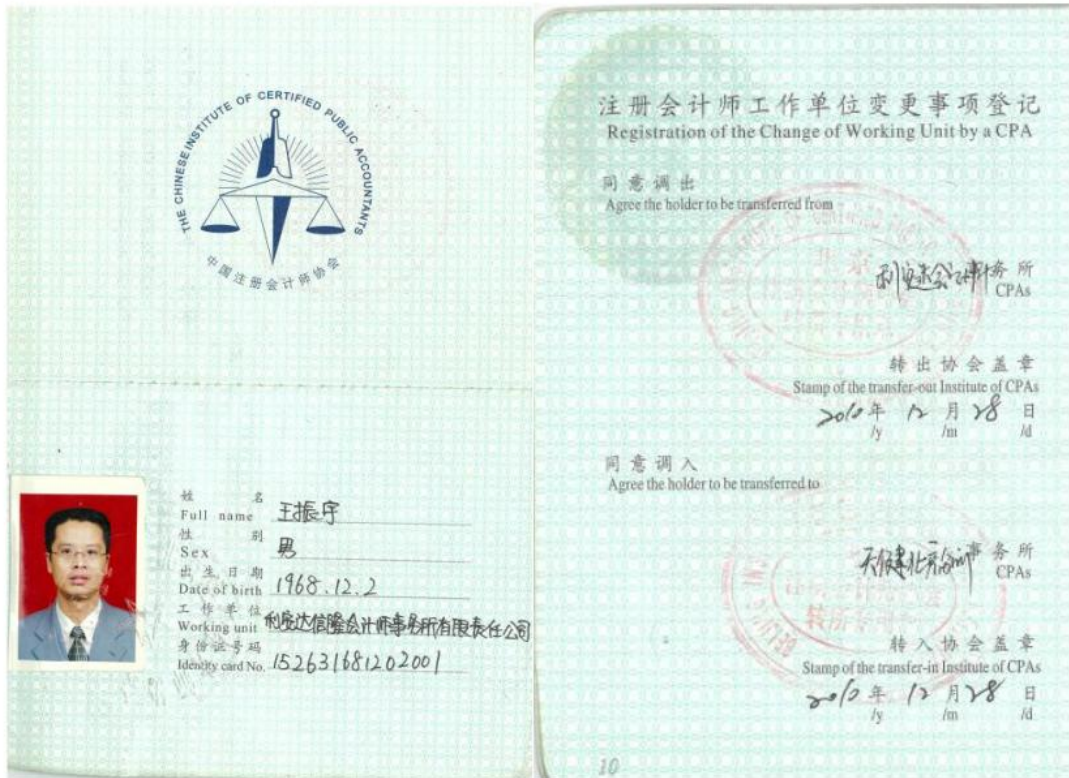 THE CHINESE INSTITUTE OF CERTIFIED PUBLIC ACCOUNTANTS
中国注册会计师协会
姓 名
Full name 王振宇
性 别
Sex 男
出生日期
Date of birth 1968.12.2
工作单位
Working unit 利安达信隆会计师事务所有限责任公司
身份证号码
Identity card No. 152631681202001
注册会计师工作单位变更事项登记
Registration of the Change of Working Unit by a CPA
同意调出
Agree the holder to be transferred from
北京
利安达会计事务所
CPAs
转出协会盖章
Stamp of the transfer-out Institute of CPAs
2010年 12月28日
/y /m /d
同意调入
Agree the holder to be transferred to
事务所
CPAs
转所专用
转入协会盖章
Stamp of the transfer-in Institute of CPAs
2010年 12月28日
/y /m /d
10